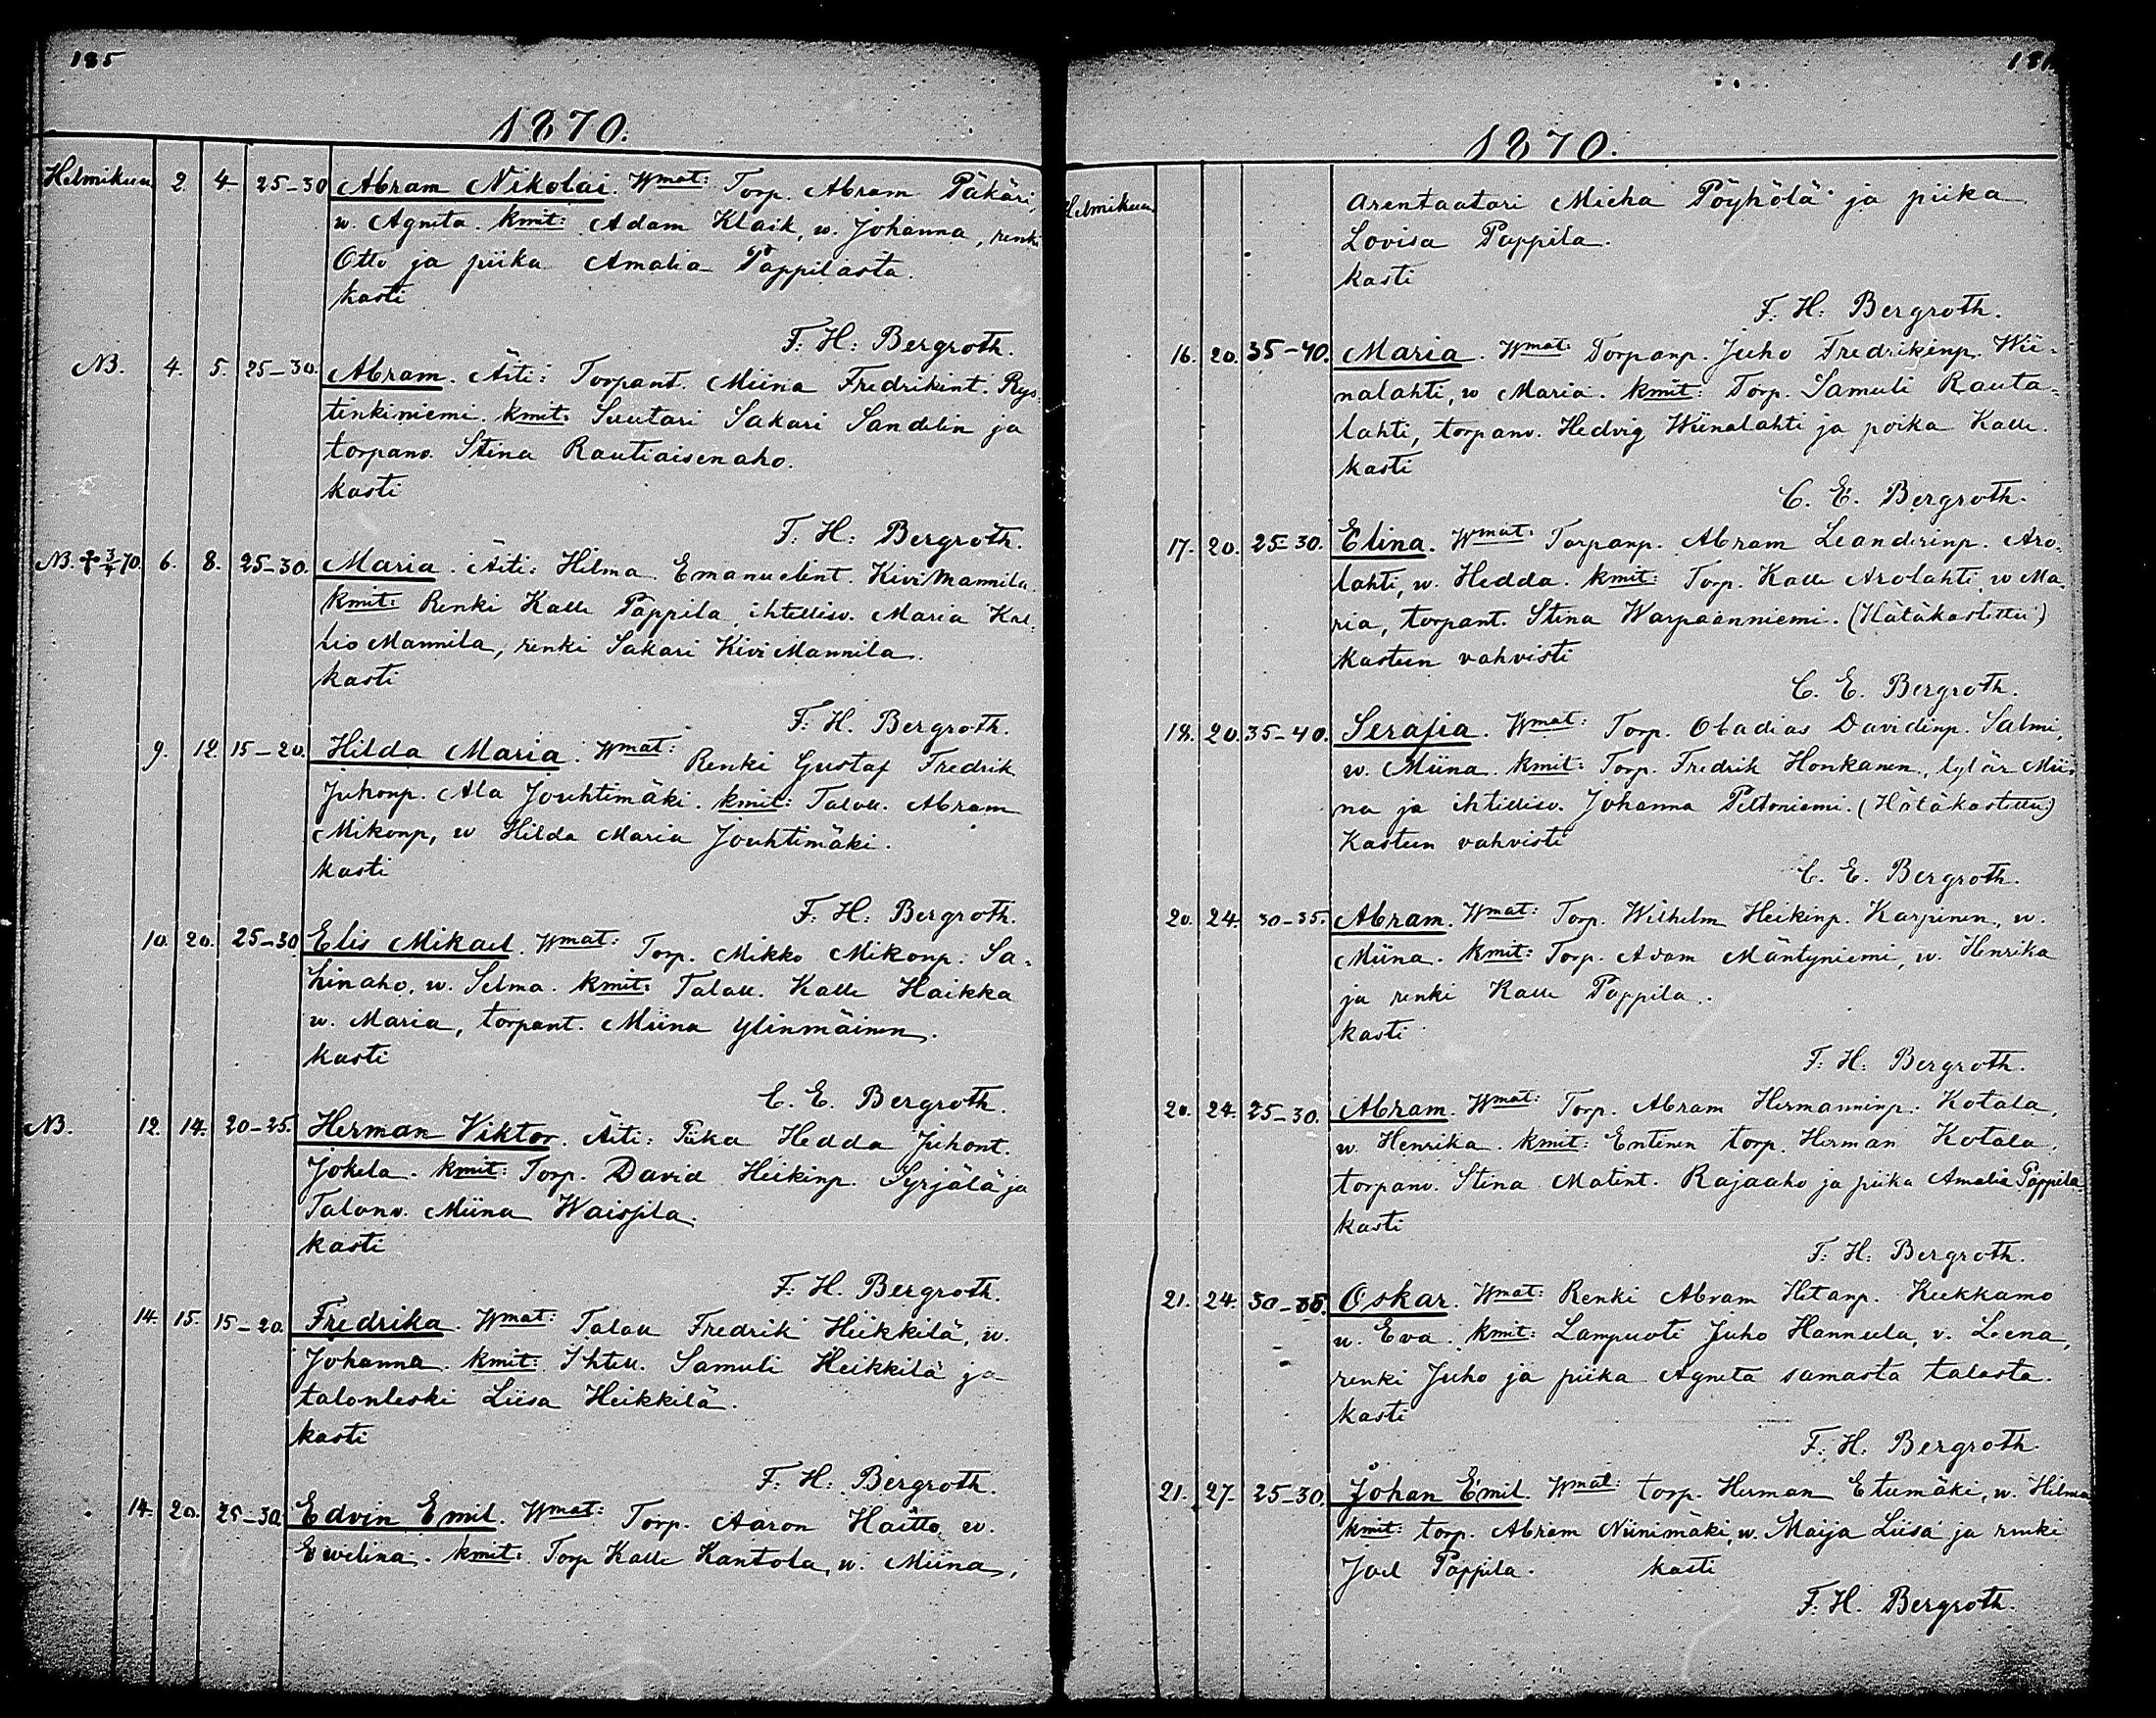 185
1870.
Helmikuu 2. 4. 25-30 Abram Nikolai. Wmat: Torp. Abram Päkäri,
w. Agneta. kmit: Adam Klaik, w. Johanna, renki
Otto ja piika Amalia Pappilasta.
kasti
F. H. Bergroth.
NB. 4. 5. 25-30. Abram. Äiti: Torpant. Miina Fredrikint. Rys-
tinkiniemi. kmit: Suutari Sakari Sandelin ja
torpanv. Stina Rautiaisenaho.
kasti
F. H. Bergroth.
NB. 6. 8. 25-30. Maria. Äiti: Hilma Emanuelint. Kivi Mannila.
kmit: Renki Kalle Pappila, ihtellisv. Maria Kal-
lio Mannila, renki Sakari Kivi Mannila.
kasti
F. H. Bergroth.
9. 12. 15-20. Hilda Maria. Wmat: Renki Gustaf Fredrik
Juhonp. Ala Jouhtimäki. kmit: Talall. Abram
Mikonp, w Hilda Maria Jouhtimäki.
kasti
F. H. Bergroth.
10. 20. 25-30 Elis Mikael. Wmat: Torp. Mikko Mikonp. Sa-
hinaho, w. Selma. kmit: Talall. Kalle Haikka
w. Maria, torpant. Miina Ylinmäinen.
kasti
C. E. Bergroth.
NB. 12. 14. 20-25. Herman Viktor. Äiti: Piika Hedda Juhont.
Jokela. kmit: Torp. David Heikinp. Syrjälä ja
Talonv. Miina Waissila.
kasti
F. H. Bergroth.
14. 15. 15-20. Fredrika. Wmat: Talall Fredrik Heikkilä, w.
Johanna. kmit: Ihtell. Samuli Heikkilä ja
talonleski Liisa Heikkilä.
kasti
F. H. Bergroth.
14. 20. 25-30. Edvin Emil. Wmat: Torp. Aaron Haitto, w.
Ewelina. kmit: Torp Kalle Kantola, w. Miina,
1870.
Helmikuu arentaatari Micha Pöyhölä ja piika
Lovisa Pappila.
kasti
F. H. Bergroth.
16. 20. 35-40. Maria. Wmat: Torpanp. Juho Fredrikinp. Wii-
nalahti, w Maria. kmit: Torp. Samuli Rauta-
lahti, torpanv. Hedvig Wiinalahti ja poika Kalle.
kasti
C. E. Bergroth.
17. 20. 25-30. Elina. Wmat: Torpanp. Abram Leanderinp. Aro-
lahti, w. Hedda. kmit: Torp. Kalle Arolahti, w Ma-
ria, torpant. Stina Warpaanniemi. (Hätäkastettu)
Kasteen vahvisti
C. E. Bergroth.
18. 20. 35-40. Serafia. Wmat: Torp. Obadias Davidinp. Salmi,
w. Miina. kmit: Torp. Fredrik Honkanen, tytär Mii-
na ja ihtellisv. Johanna Peltoniemi. (Hätäkastettu)
Kasteen vahvisti
C. E. Bergroth.
20. 24. 30-35. Abram. Wmat: Torp. Wilhelm Heikinp. Karpinen, w.
Miina. kmit: Torp. Adam Mäntyniemi, w. Henrika
ja renki Kalle Pappila.
kasti
F. H. Bergroth.
20. 24. 25-30. Abram. Wmat: Torp. Abram Hermanninp. Kotala,
w. Henrika. kmit: Entinen torp. Herman Kotala,
torpanv. Stina Matint. Rajaaho ja piika Amalia Pappila
kasti
F. H. Bergroth.
21. 24. 30-35. Oskar. Wmat: Renki Abram Hetanp. Kukkamo
w. Eva. kmit: Lampuoti Juho Hannula, v. Leena,
renki Juho ja piika Agneta samasta talosta.
kasti
F. H. Bergroth.
21. 27. 25-30. Johan Emil. Wmat: torp. Herman Etumäki, w. Hilma
kmit: torp. Abram Niinimäki, w. Maija Liisa ja renki
Joel Pappila. kasti
F. H. Bergroth.